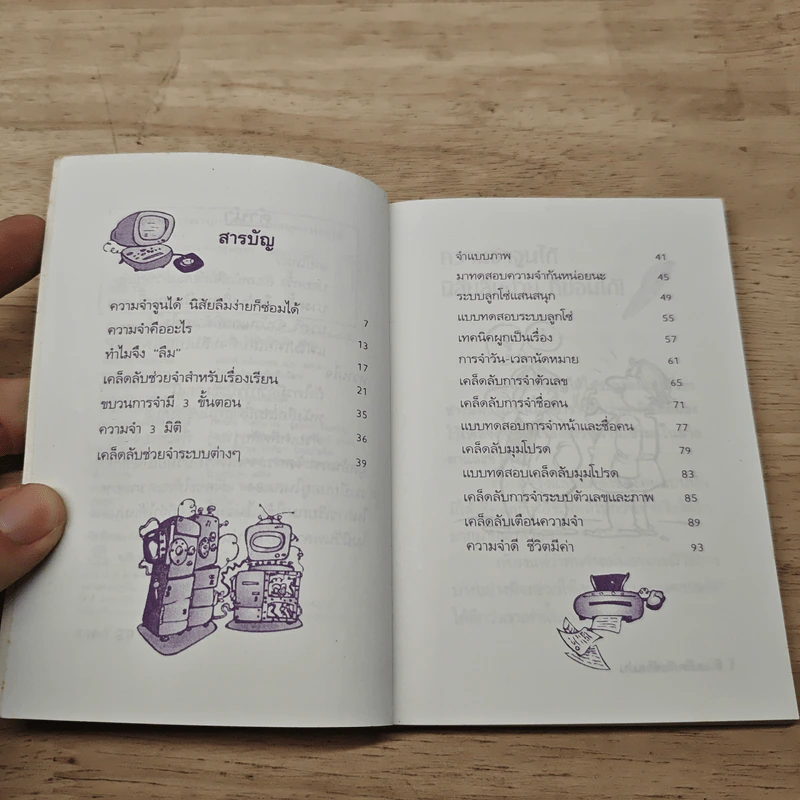 สารบัญ
ความจำจูนได้ นิสัยลืมง่ายก็ซ่อมได้ 7
ความจำคืออะไร 13
ทำไมจึง "ลืม" 17
เคล็ดลับช่วยจำสำหรับเรื่องเรียน 21
ขบวนการจำมี 3 ขั้นตอน 35
ความจำ 3 มิติ 36
เคล็ดลับช่วยจำระบบต่างๆ 39
จำแบบภาพ 41
มาทดสอบความจำกันหน่อยนะ 45
ระบบลูกโซ่แสนสนุก 49
แบบทดสอบระบบลูกโซ่ 55
เทคนิคผูกเป็นเรื่อง 57
การจำวัน-เวลานัดหมาย 61
เคล็ดลับการจำตัวเลข 65
เคล็ดลับการจำชื่อคน 71
แบบทดสอบการจำหน้าและชื่อคน 77
เคล็ดลับมุมโปรด 79
แบบทดสอบเคล็ดลับมุมโปรด 83
เคล็ดลับการจำระบบตัวเลขและภาพ 85
เคล็ดลับเตือนความจำ 89
ความจำดี ชีวิตมีค่า 93